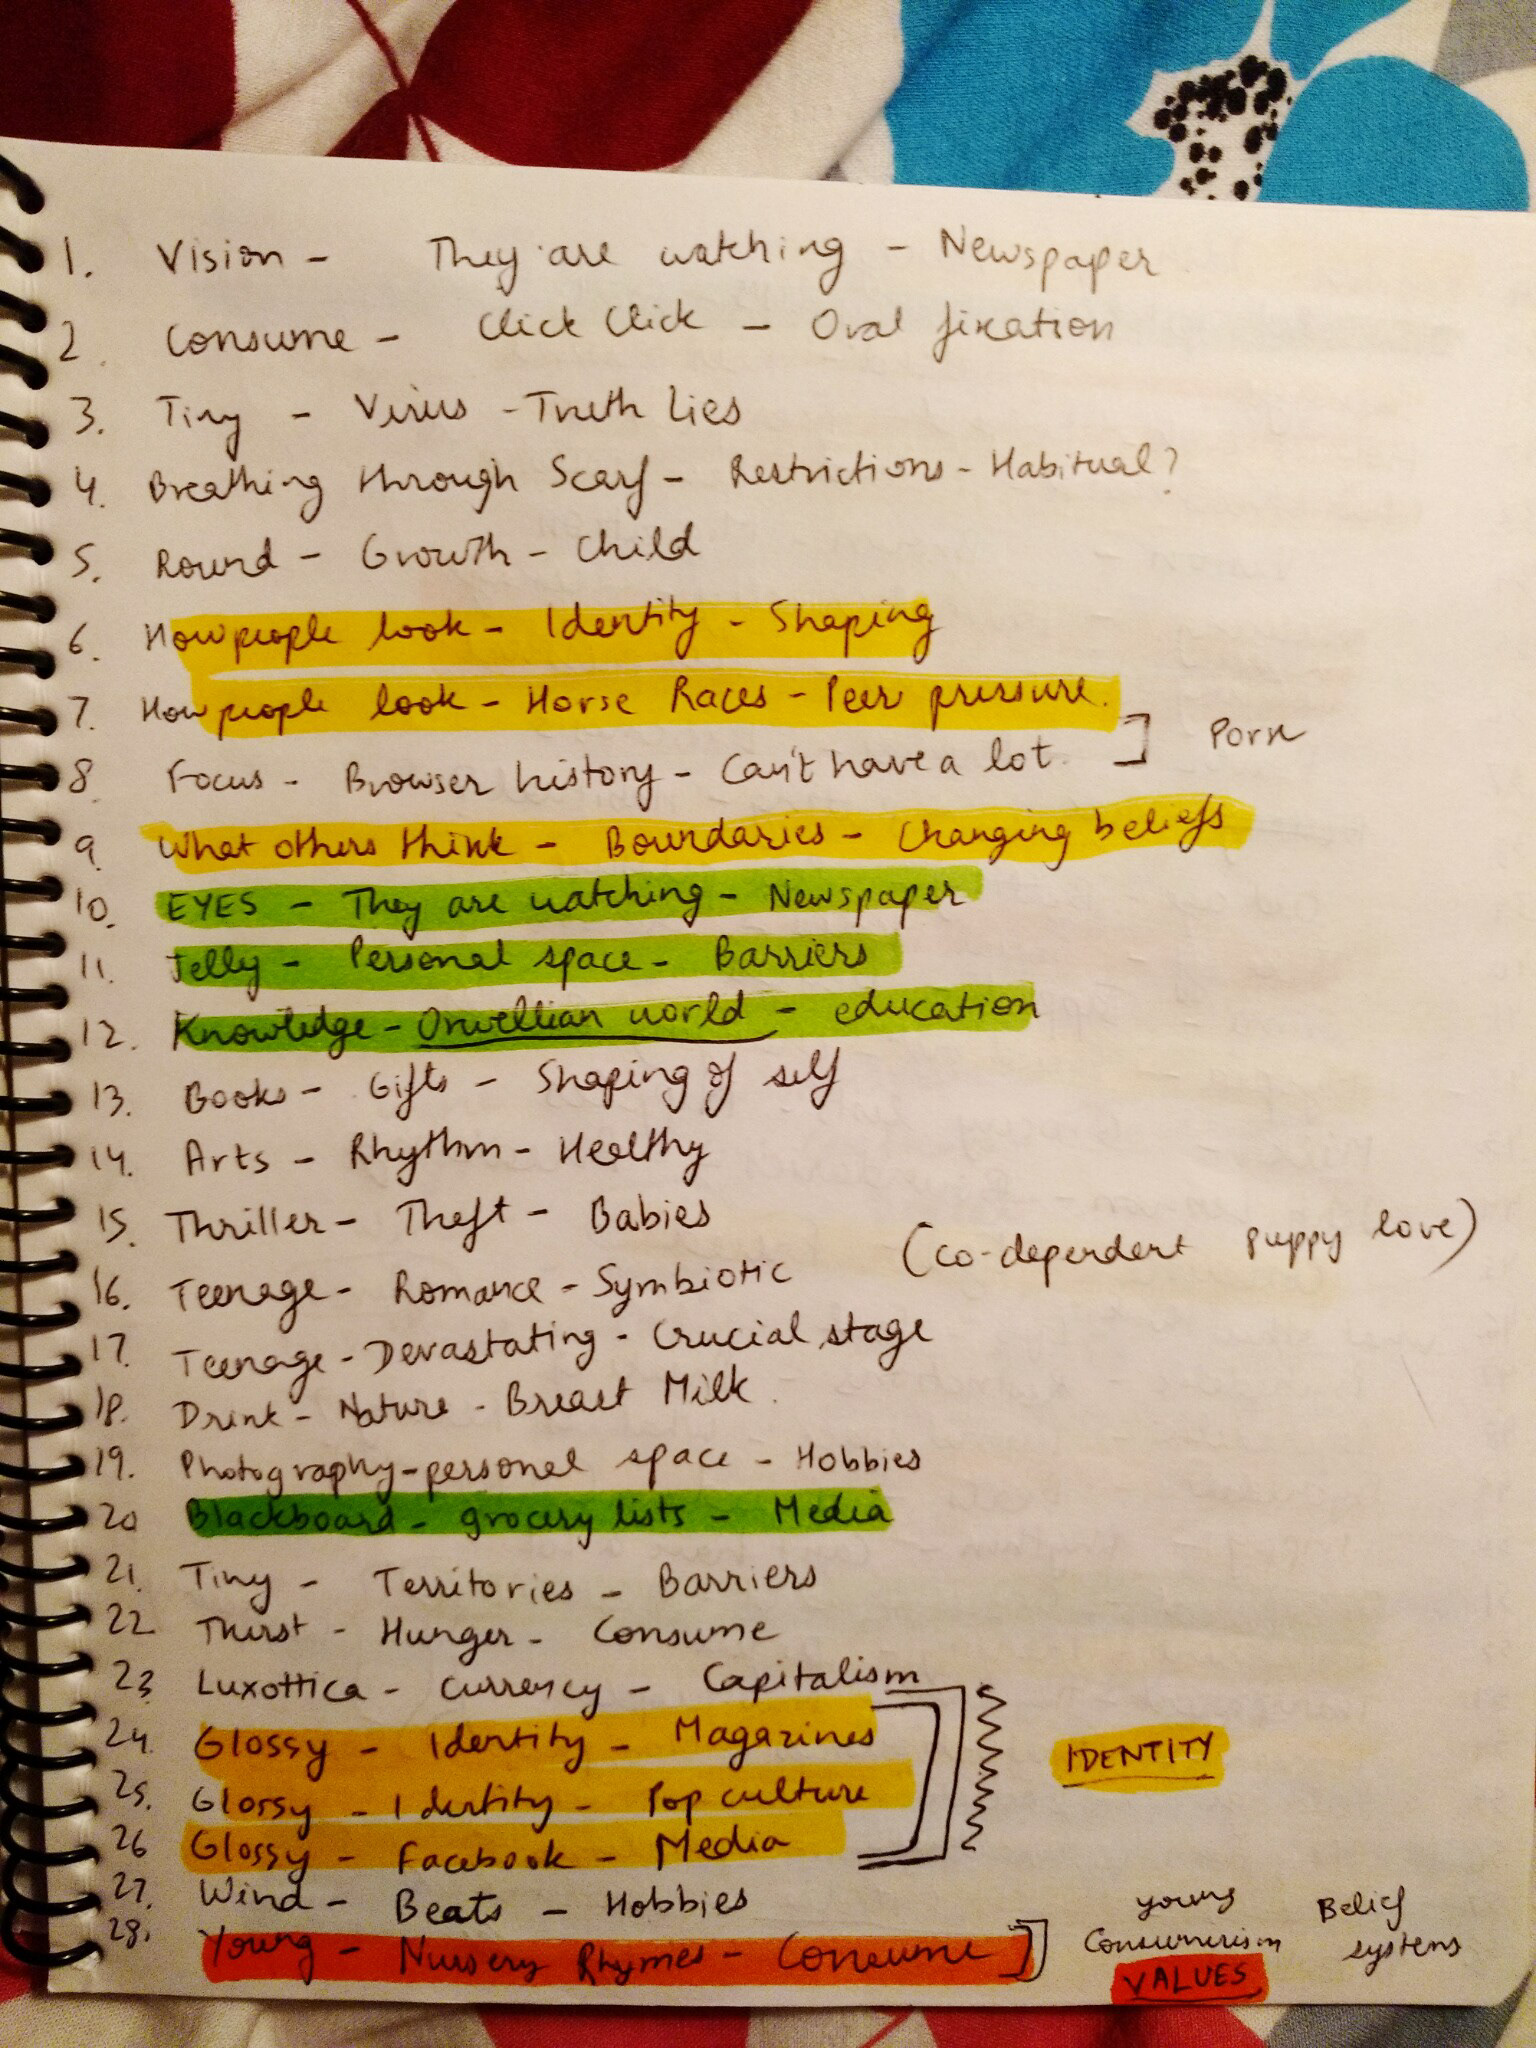 1. Vision - They are watching - Newspaper
2. Consume - Click Click - Oral fixation
3. Tiny - Virus - Truth Lies
4. Breathing through Scarf - Restrictions - Habitual?
5. Round - Growth - Child
6. How people look - Identity - Shaping
7. How people look - Horse Races - Peer pressure.
8. Focus - Browser history - Can't have a lot. ] Porn
9. What others think - Boundaries - Changing beliefs
10. EYES - They are watching - Newspaper
11. Jelly - Personal space - Barriers
12. Knowledge - Orwellian world - education
13. Books - Gifts - Shaping of self
14. Arts - Rhythm - Healthy
15. Thriller - Theft - Babies
(co-dependent puppy love)
16. Teenage - Romance - Symbiotic
17. Teenage - Devastating - Crucial stage
18. Drink - Nature - Breast Milk.
19. Photography - personal space - Hobbies
20 Blackboard - grocery lists - Media
21. Tiny - Territories - Barriers
22. Thirst - Hunger - Consume
23 Luxottica - Currency - Capitalism
24. Glossy - Identity - Magazines
IDENTITY
25. Glossy - Identity - Pop culture
26 Glossy - Facebook - Media
27. Wind - Beats - Hobbies
28. Young - Nursery Rhymes - Consume ]
young
Consumerism
VALUES
Belief
systems